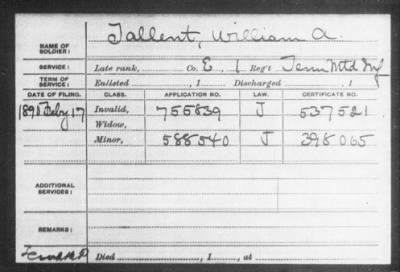 NAME OF SOLDIER: Tallent, William A.
SERVICE: Late rank, Co. E, 1 Reg't Tenn Mtd Inf
TERM OF SERVICE: Enlisted , 1 Discharged , 1
DATE OF FILING. CLASS. APPLICATION NO. LAW. CERTIFICATE NO.
1890 Feby 17 Invalid, 755839 J 537521
Widow,
Minor, 588540 J 398065
ADDITIONAL SERVICES:
REMARKS:
Died , 1 , at